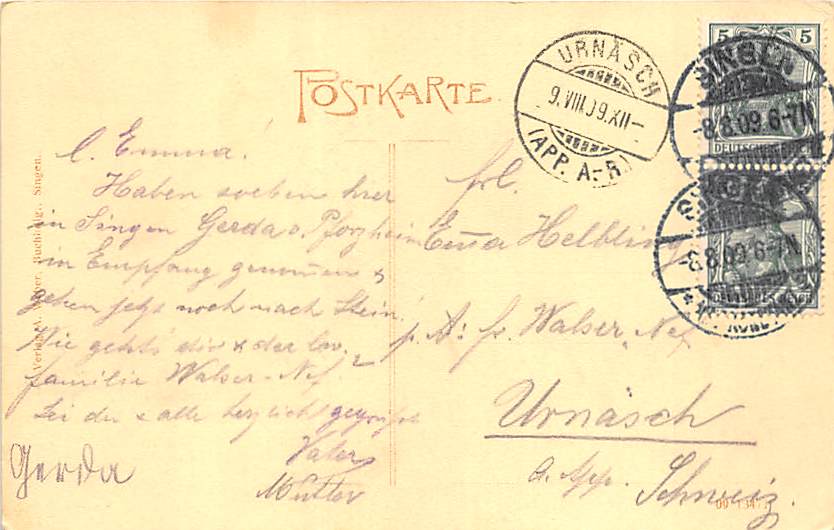 POSTKARTE
URNÄSCH
9.VIII.09.XII-
(APP. A.-R.)
5 5
SINGEN
-8.8.09.6-7N.
DEUTSCHES REICH
SINGEN
-8.8.09.6-7N.
DEUTSCHES REICH
l. Emma!
Haben soeben hier
in Singen Gerda v. Pforzheim
in Empfang genommen &
gehen jetzt noch nach Stein.
Wie geht's dir & der lb.
Familie Walser-Nef?
Sei du & alle herzlich gegrüsst
Vater
Mutter
Gerda
Frl.
Emma Helbling
p. A: Walser-Nef
Urnäsch
a. App.
Schweiz.
Verlag A. Weber, Buchhdlg., Singen.
09 1347